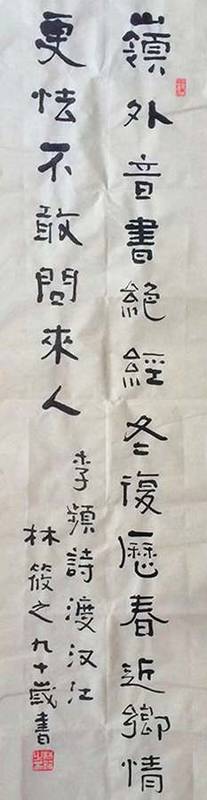 嶺外音書絶經冬復歷春近鄉情
更怯不敢問來人
李頻詩渡汉江
林筱之九十歲書